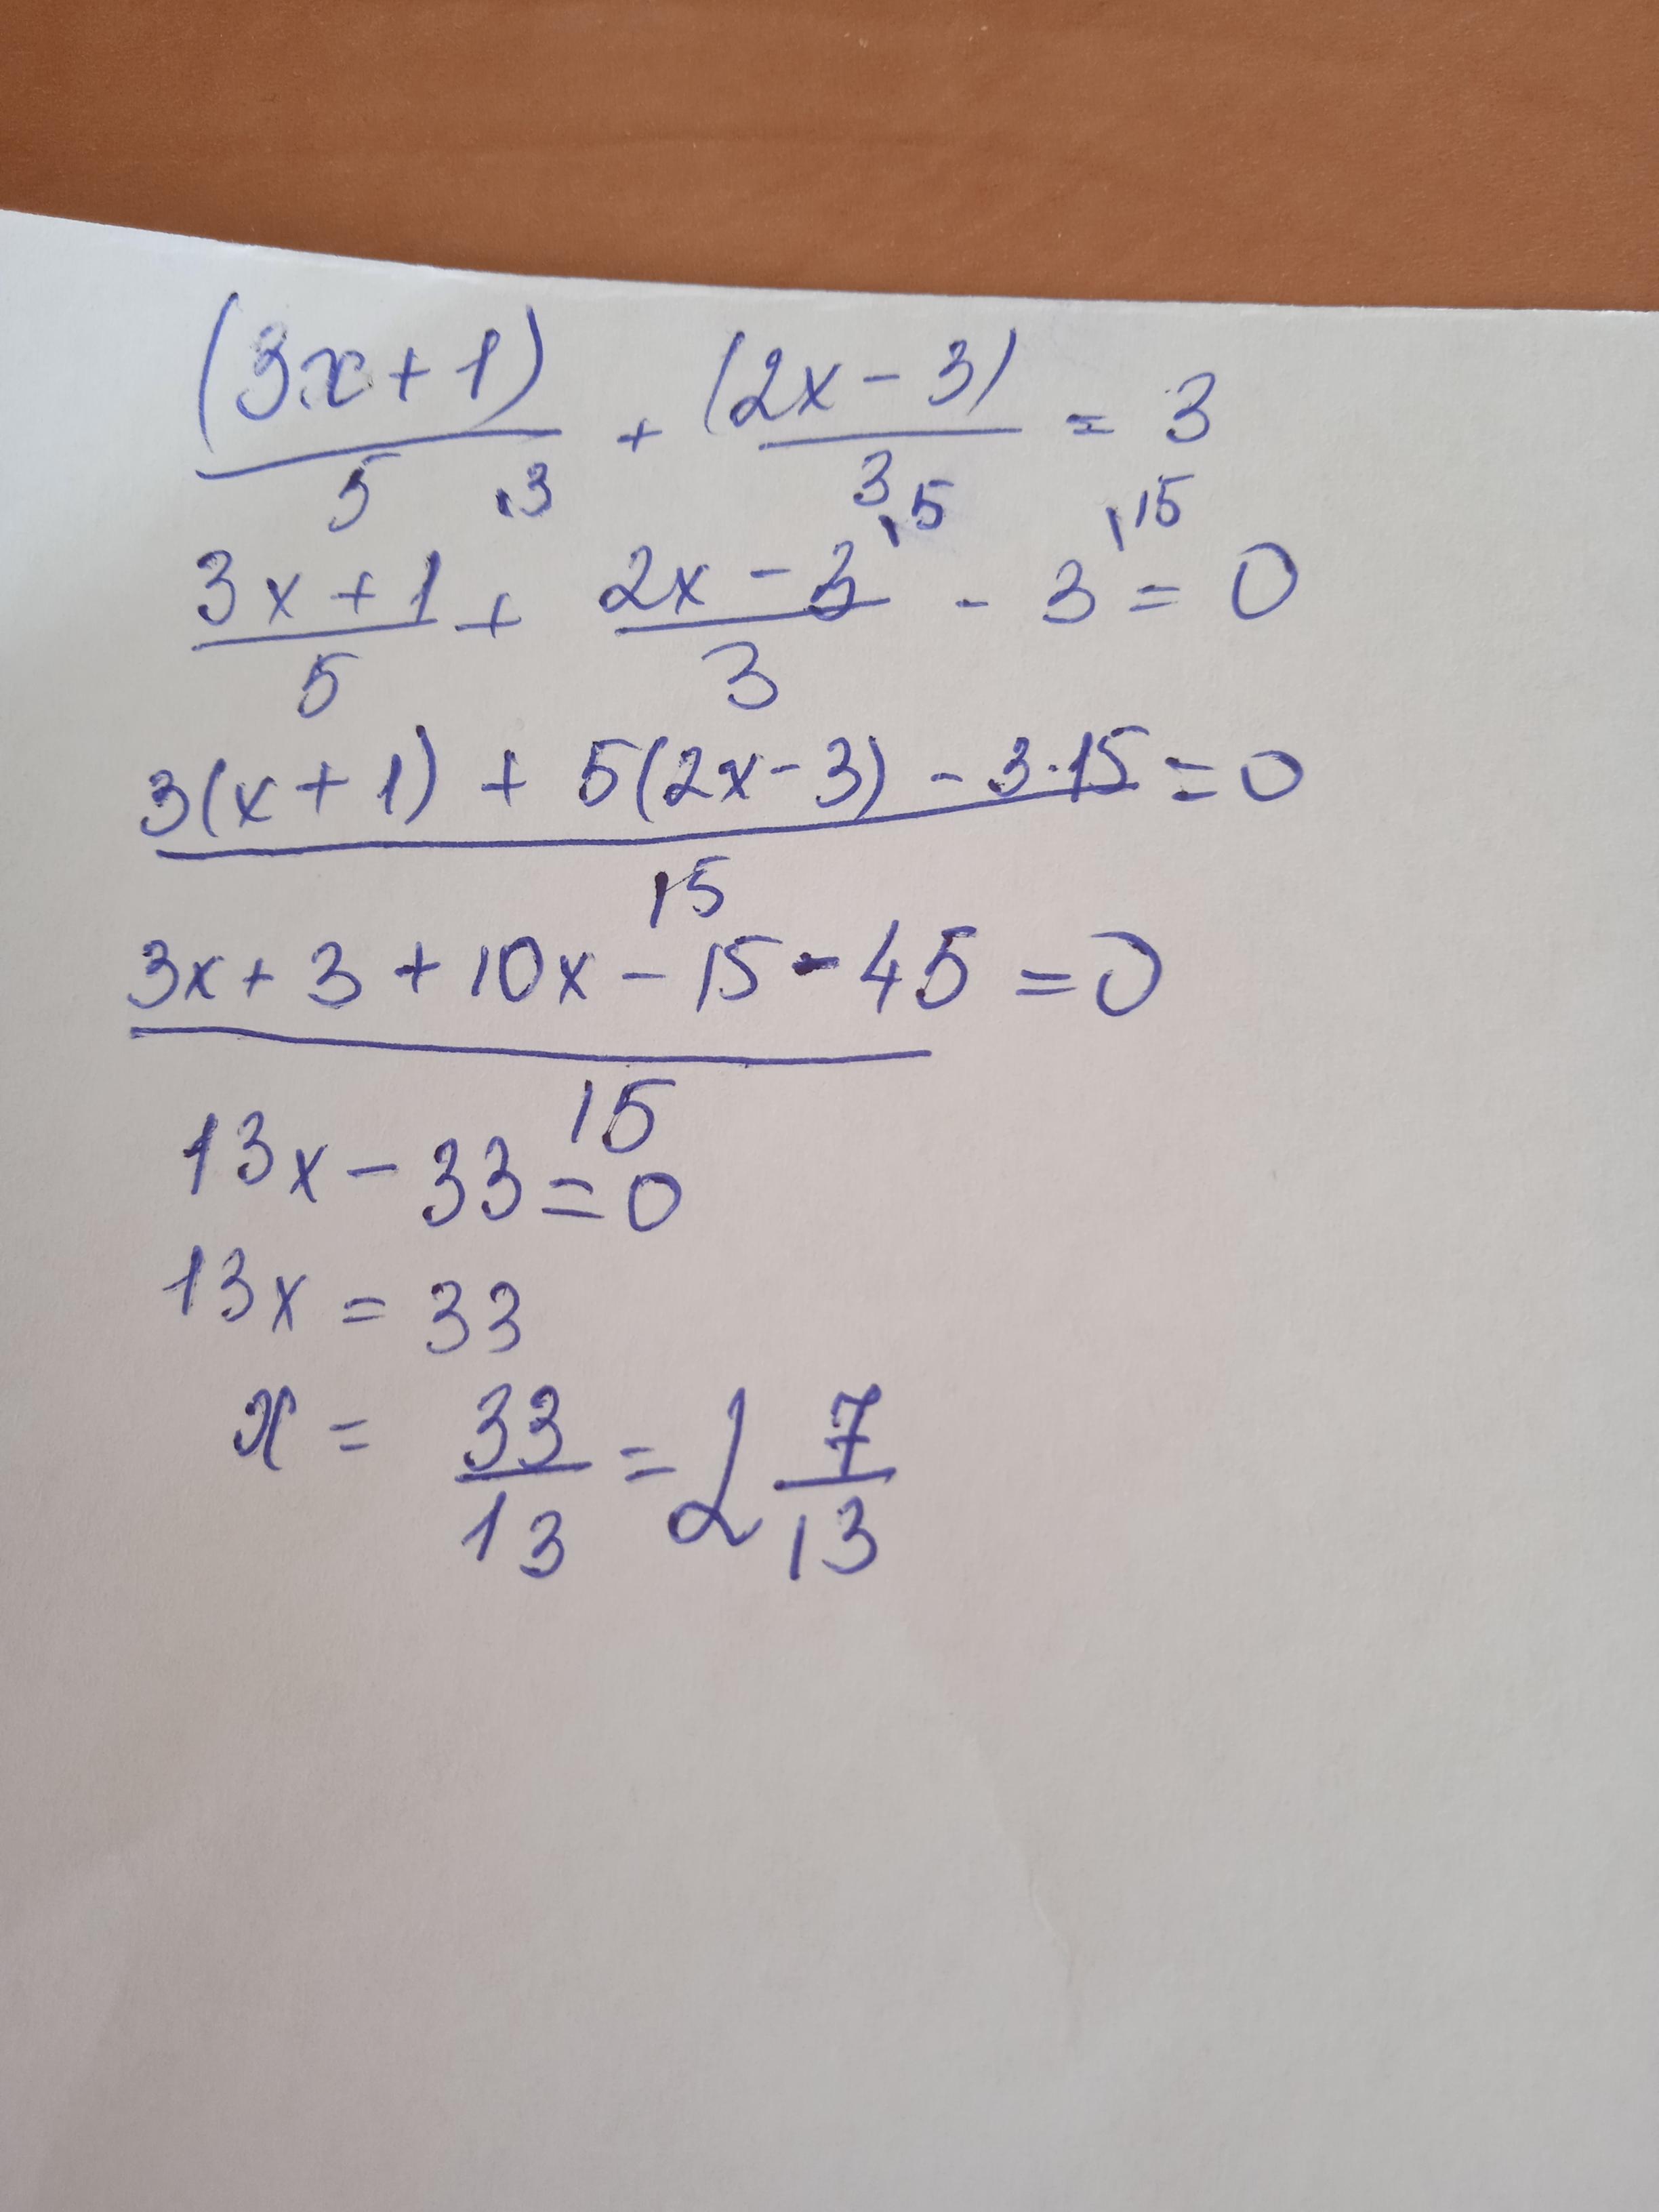 (3x+1)/5 + (2x-3)/3 = 3
,3 ,5 ,15
3x+1/5 + 2x-3/3 - 3 = 0
3(x+1) + 5(2x-3) - 3·15 = 0
15
3x+3+10x-15-45=0
15
13x-33=0
13x=33
x = 33/13 = 2 7/13